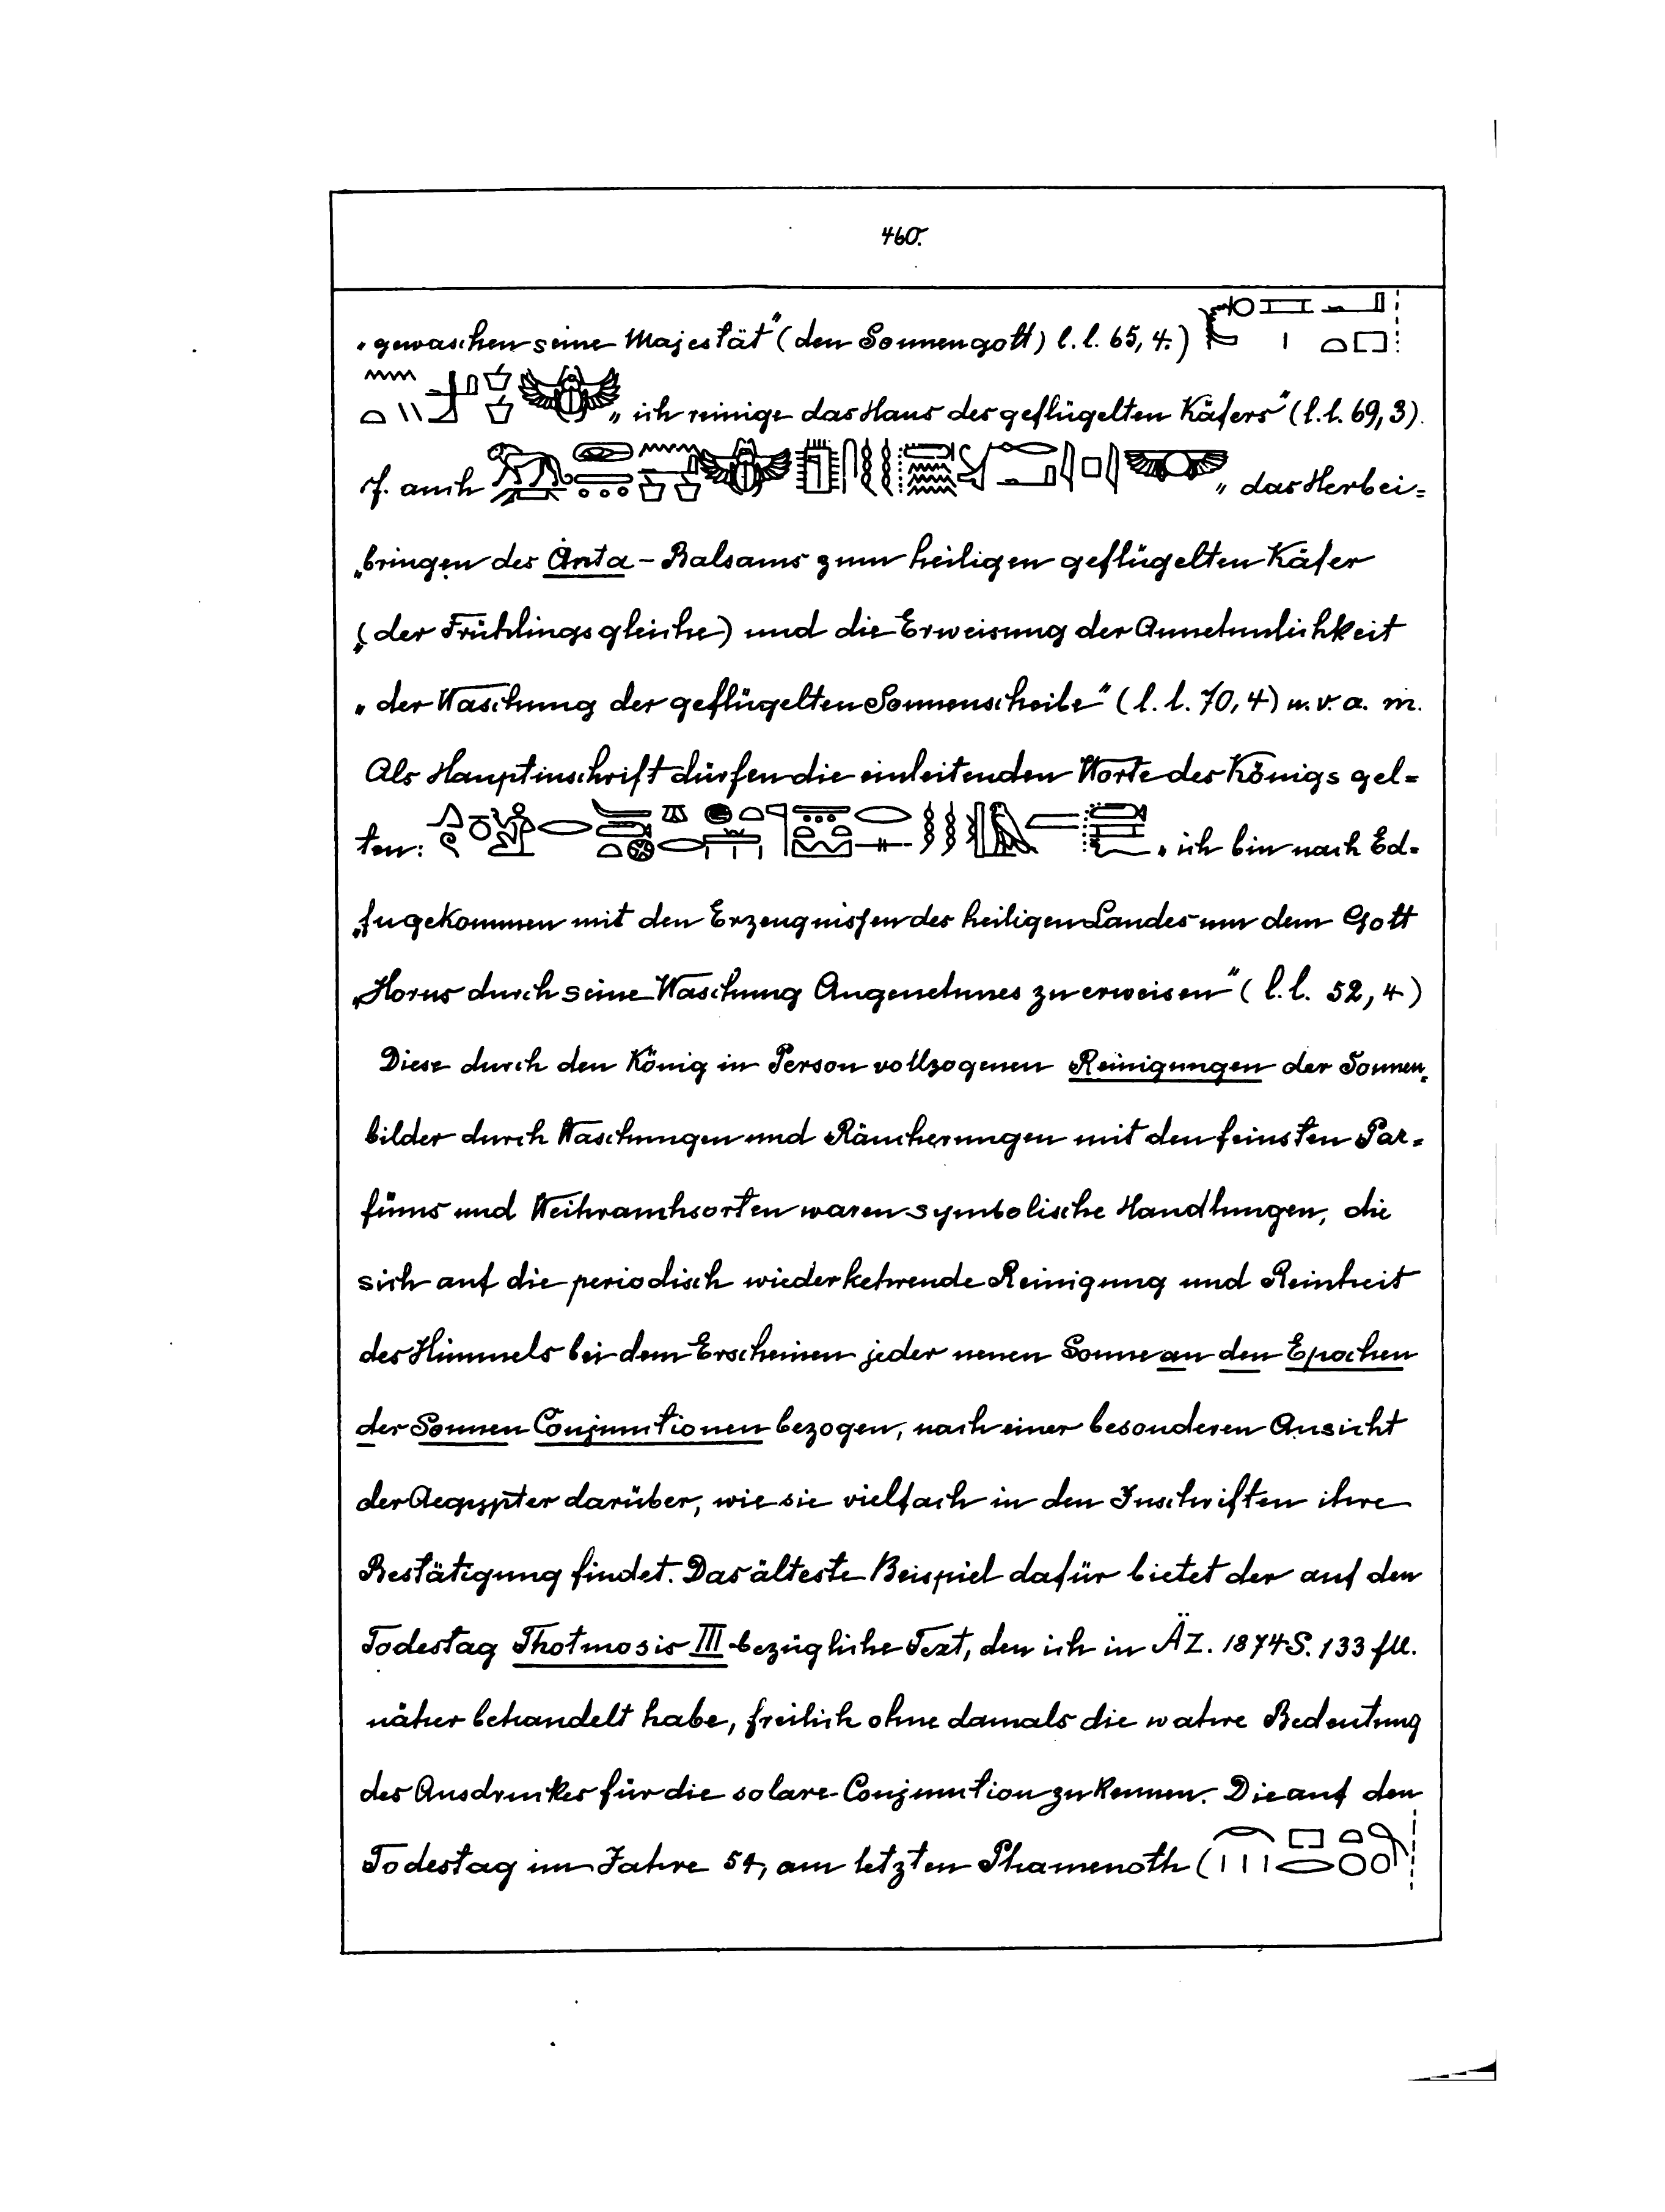 460.
„gewaschen seine Majestät" (den Sonnengott) l. l. 65, 4.)
„ich reinige das Haus des geflügelten Käfers" (l. l. 69, 3).
cf. auch „das Herbei=
„bringen des Ȧnta - Balsams zum heiligen geflügelten Käfer
„(der Frühlingsgleiche) und die Erweisung der Annehmlichkeit
„der Waschung der geflügelten Sonnenscheibe" (l. l. 70, 4) u. v. a. m.
Als Hauptinschrift dürfen die einleitenden Worte des Königs gel=
ten: „ich bin nach Ed=
„fu gekommen mit den Erzeugnissen des heiligen Landes um dem Gott
„Horus durch seine Waschung Angenehmes zu erweisen" (l. l. 52, 4)
Diese durch den König in Person vollzogenen Reinigungen der Sonnen=
bilder durch Waschungen und Räucherungen mit den feinsten Par=
füms und Weihrauchsorten waren symbolische Handlungen, die
sich auf die periodisch wiederkehrende Reinigung und Reinheit
des Himmels bei dem Erscheinen jeder neuen Sonne an den Epochen
der Sonnen Conjunctionen bezogen, nach einer besonderen Ansicht
der Aegypter darüber, wie sie vielfach in den Inschriften ihre
Bestätigung findet. Das älteste Beispiel dafür bietet der auf den
Todestag Thotmosis III bezügliche Text, den ich in ÄZ. 1874 S. 133 fll.
näher behandelt habe, freilich ohne damals die wahre Bedeutung
des Ausdruckes für die solare Conjunction zu kennen. Die auf den
Todestag im Jahre 54, am letzten Phamenoth (